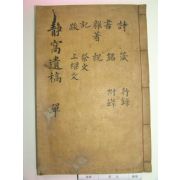 詩 箋 行錄
書 銘 附錄
雜著 祝
記 祭文
跋 上樑文
靜窩遺稿 單